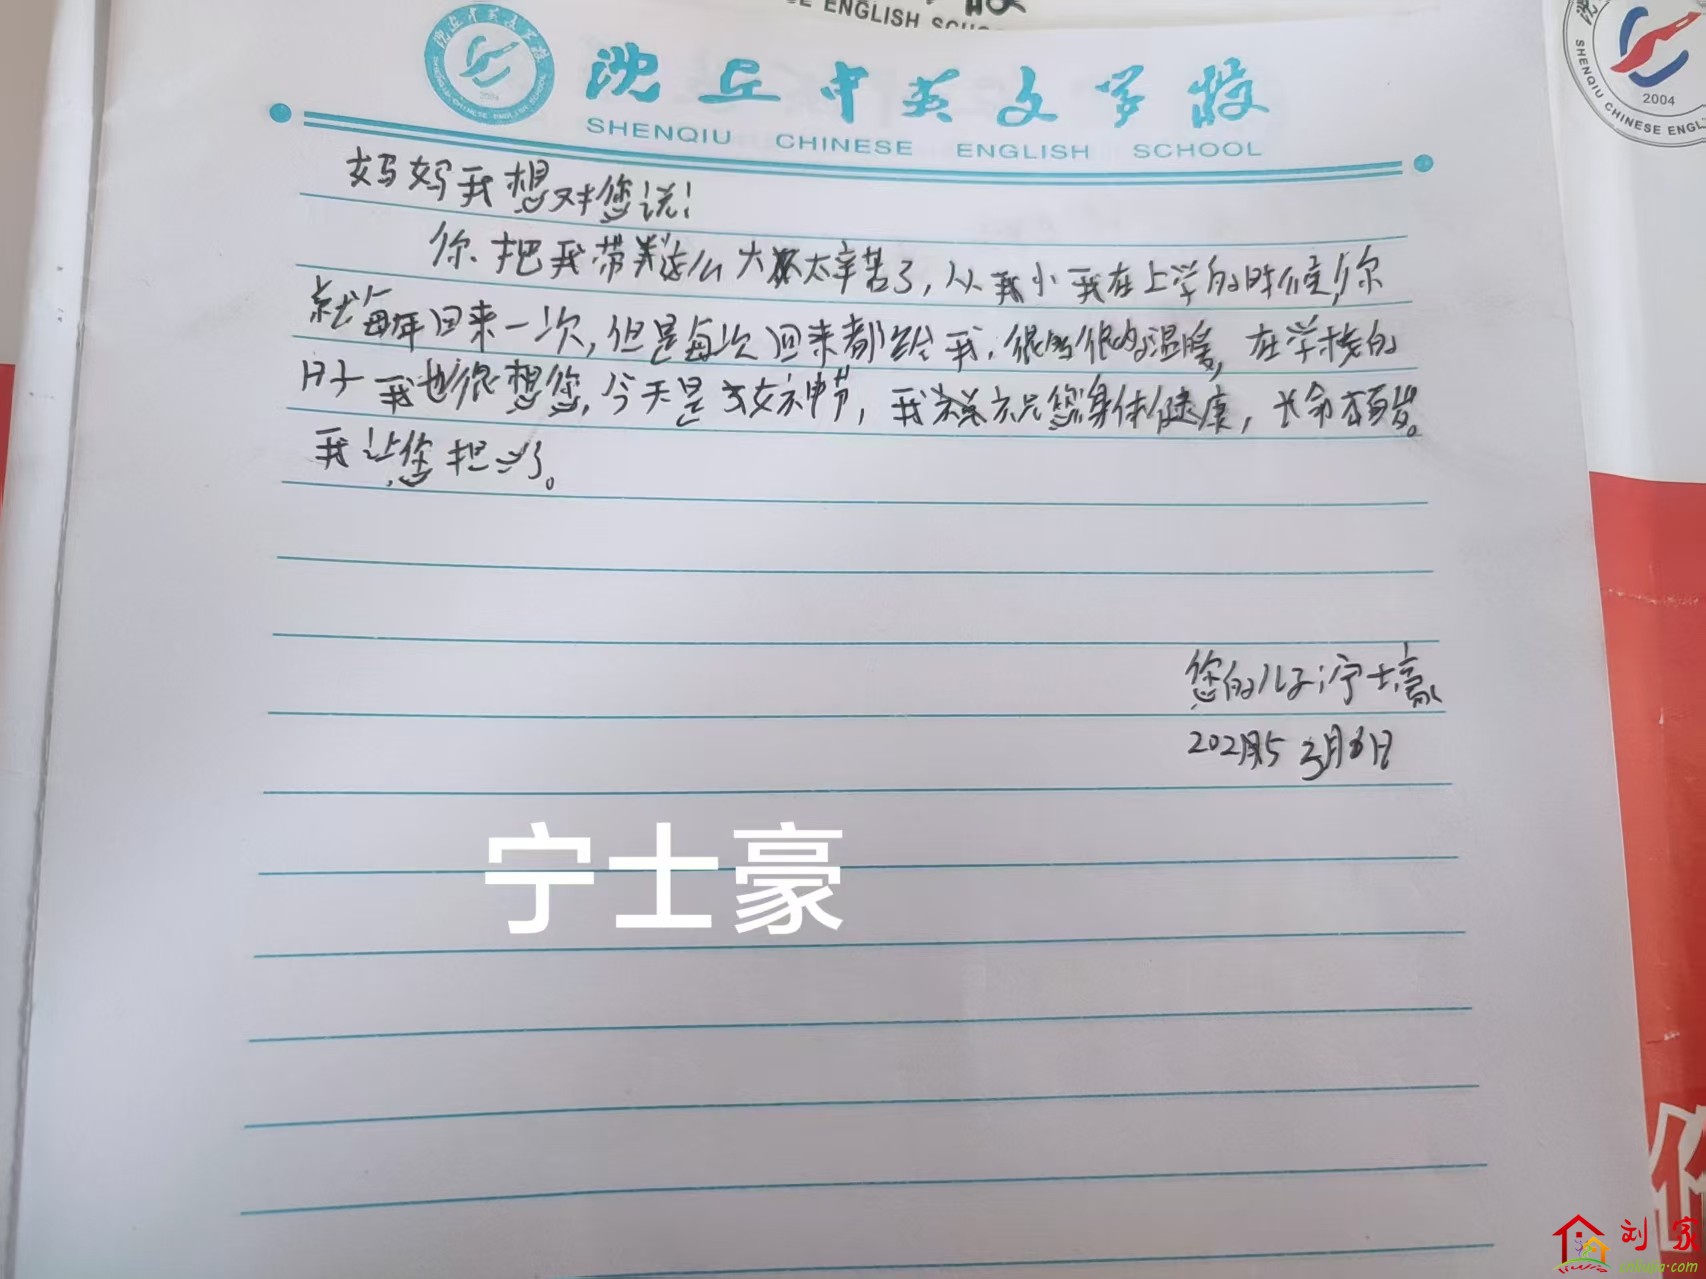 ENGLISH SCHO
沈丘中英文学校
SHENQIU CHINESE ENGLISH SCHOOL
2004
SHENQIU CHINESE ENGL
2004
妈妈我想对您说!
你把我带养这么大太辛苦了,从我小我在上学的时候,你
就每年回来一次,但是每次回来都给我,很的温暖,在学校的
日子我也很想您,今天是女神节,我祝您身体健康,长命百岁。
我让您担心了。
您的儿子:宁士豪
2025 3月8日
宁士豪
刘家